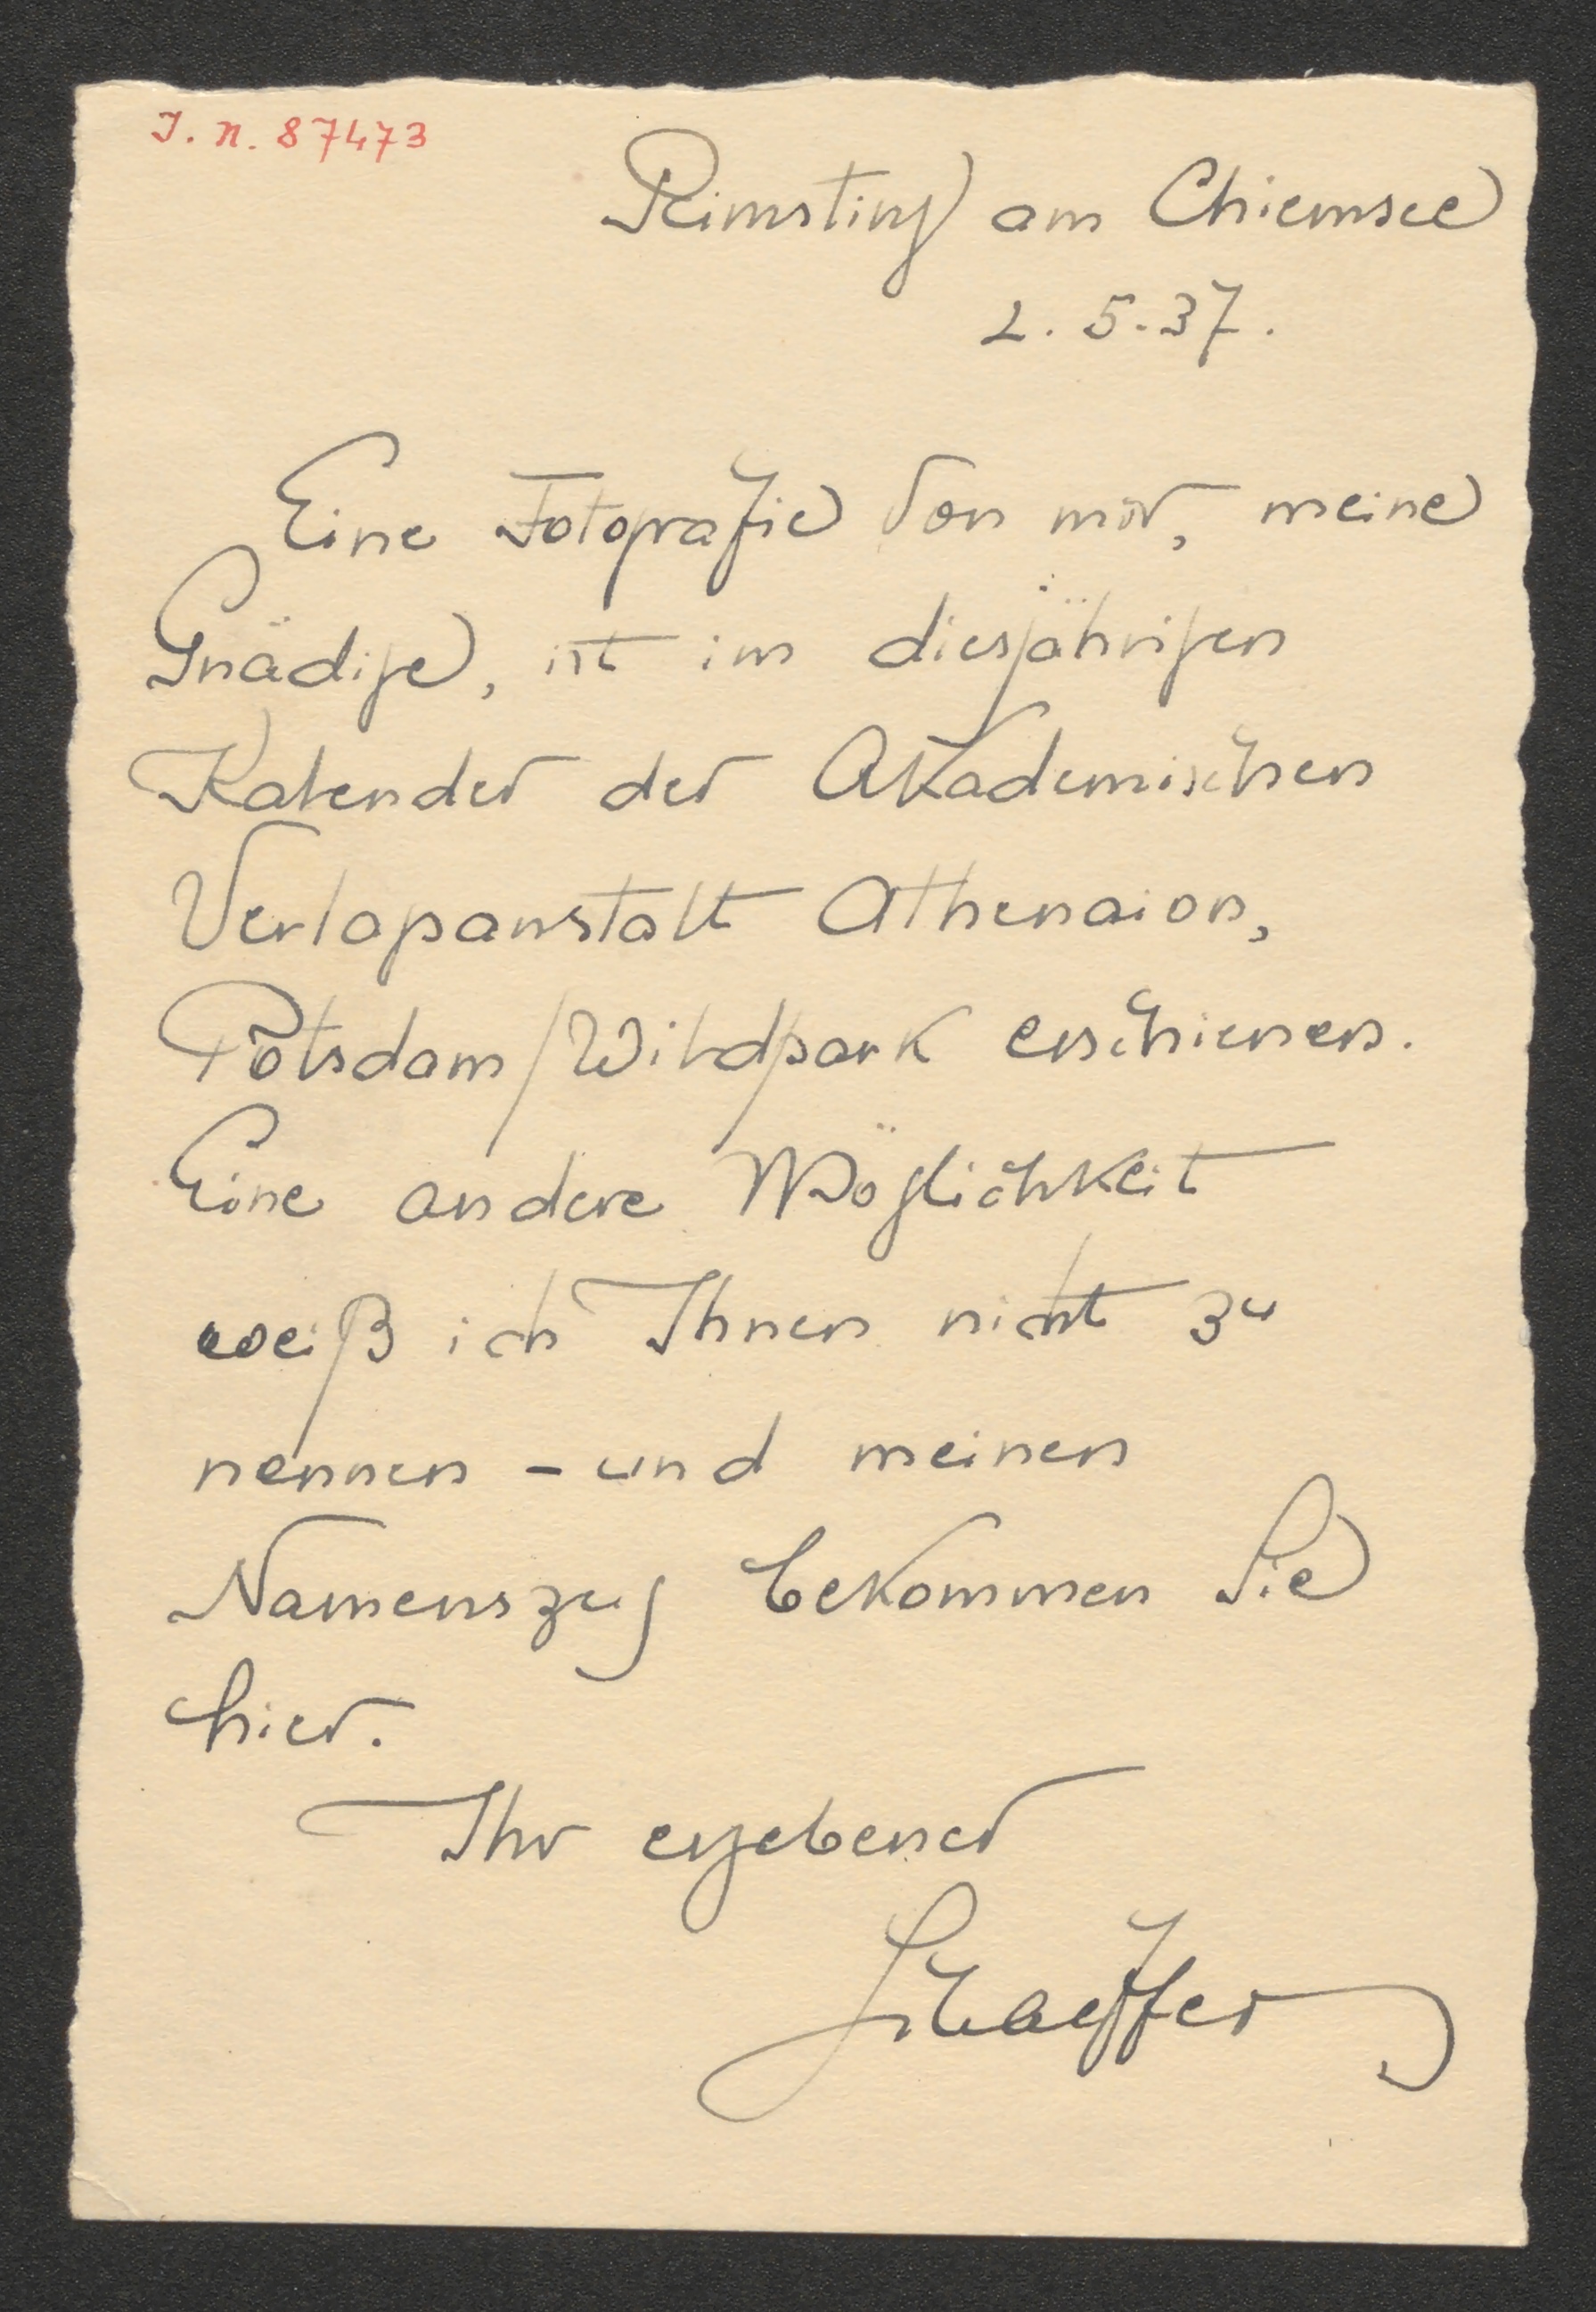 J. N. 87473
Rimsting am Chiemsee
2. 5. 37.
Eine Fotografie von mir, meine
Gnädige, ist im diesjährigen
Kalender der Akademischen
Verlagsanstalt Athenaion,
Potsdam/Wildpark erschienen.
Eine andere Möglichkeit
weiß ich Ihnen nicht zu
nennen - und meinen
Namenszug bekommen Sie
hier.
Ihr ergebener
Schaeffer